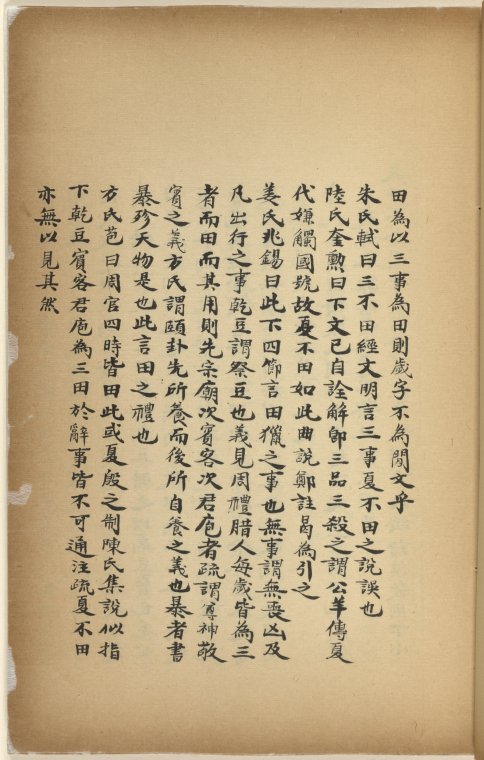 田為以三事為田則歲字不為閒文乎
朱氏軾曰三不田經文明言三事夏不田之說誤也
陸氏奎勲曰下文已自詮解即三品三殺之謂公羊傳夏
代嫌觸國號故夏不田如此曲說鄭註曷為引之
姜氏兆錫曰此下四節言田獵之事也無事謂無喪凶及
凡出行之事乾豆謂祭豆也義見周禮腊人每歲皆為三
者而田而其用則先宗廟次賓客次君庖者疏謂尊神敬
賓之義方氏謂頤卦先所養而後所自養之義也暴者書
暴殄天物是也此言田之禮也
方氏苞曰周官四時皆田此或夏殷之制陳氏集說似指
下乾豆賓客君庖為三田於辭事皆不可通注疏夏不田
亦無以見其然